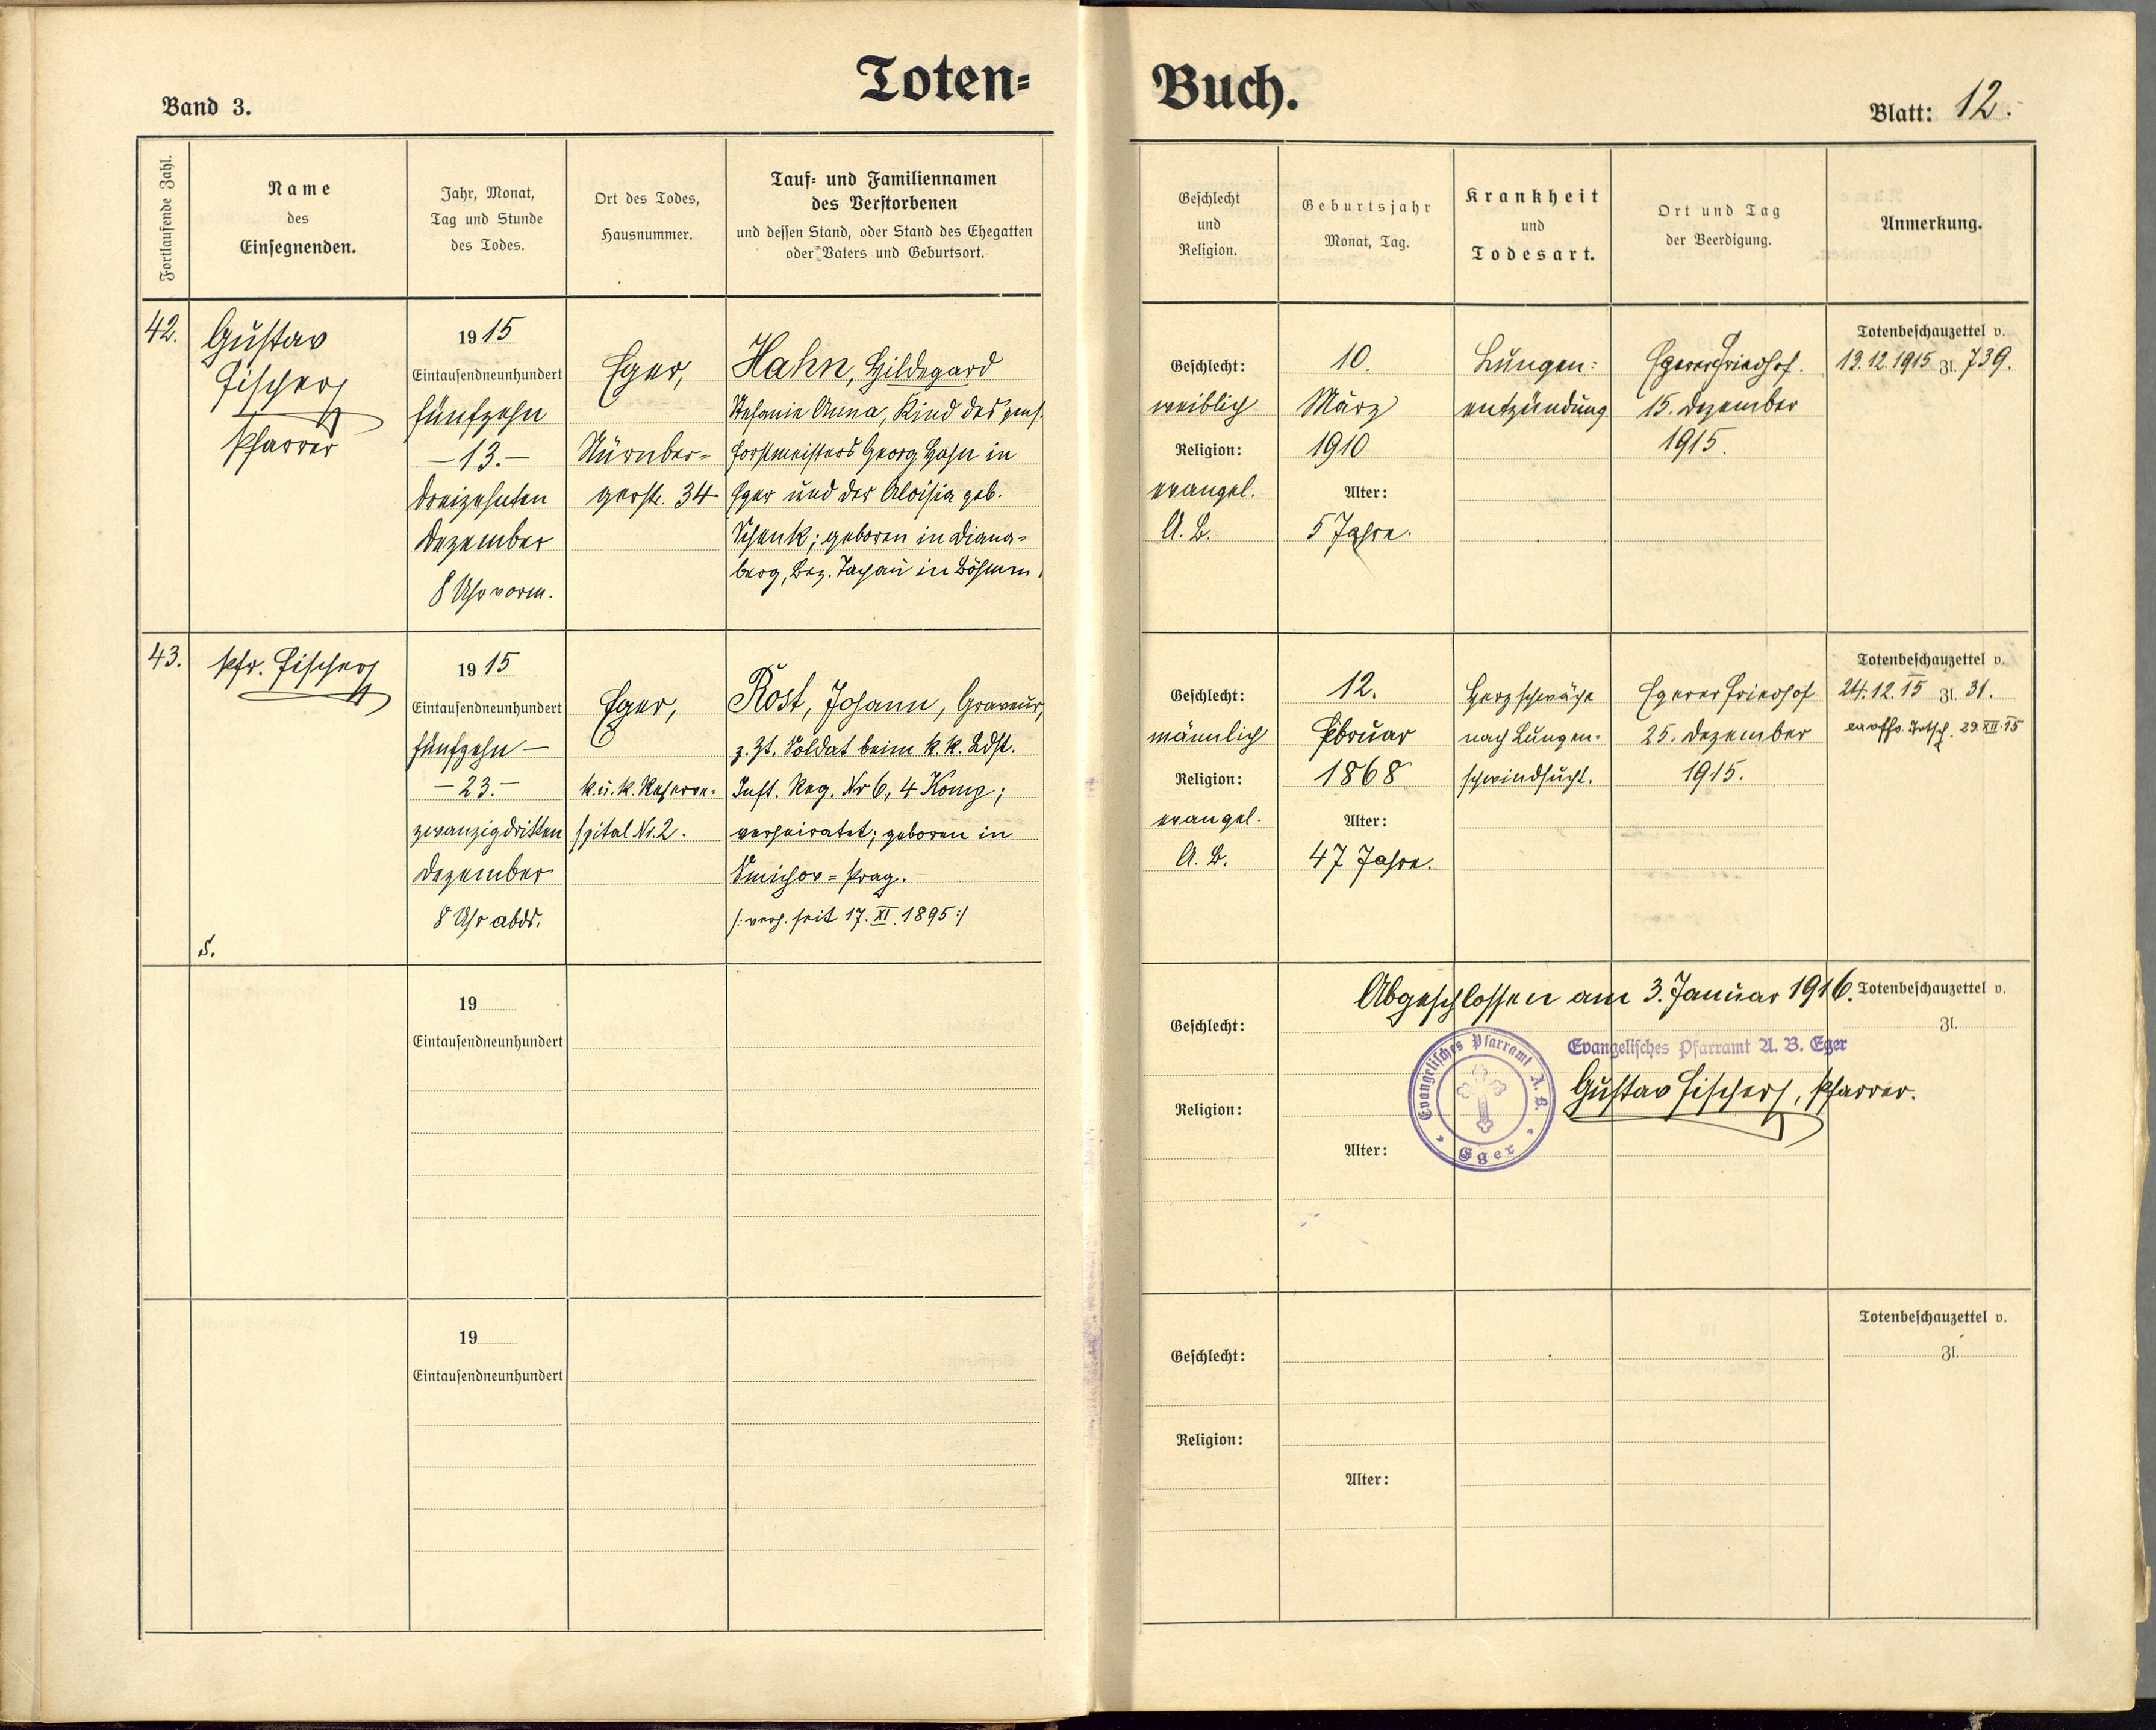 Toten=
Buch.
Band 3.
Blatt: 12.
Fortlaufende Zahl.
Name
des
Einsegnenden.
Jahr, Monat,
Tag und Stunde
des Todes.
Ort des Todes,
Hausnummer.
Tauf= und Familiennamen
des Verstorbenen
und dessen Stand, oder Stand des Ehegatten
oder Vaters und Geburtsort.
Geschlecht
und
Religion.
Geburtsjahr
Monat, Tag.
Krankheit
und
Todesart.
Ort und Tag
der Beerdigung.
Anmerkung.
42.
Gustav
Fischer
Pfarrer
1915
Eintausendneunhundert
fünfzehn
—13.—
dreizehnten
Dezember
8 Uhr vorm.
Eger,
Nürnber=
gerstr. 34
Hahn, Hildegard
Stefanie Anna, Kind des pens.
Forstmeisters Georg Hahn in
Eger und der Aloisia geb.
Schenk; geboren in Diana=
berg, Bez. Tachau in Böhmen.
Geschlecht:
weiblich
Religion:
evangel.
A. B.
10.
März
1910
Alter:
5 Jahre.
Lungen=
entzündung
Egerer Friedhof.
15. Dezember
1915.
Totenbeschauzettel v.
13.12.1915 Zl. 739.
43.
Pfr. Fischer
S.
1915
Eintausendneunhundert
fünfzehn —
—23.—
zwanzigdritten
Dezember
8 Uhr abds.
Eger,
k. u. k. Reserve=
spital Nr. 2.
Rost, Johann, Graveur,
z. Zt. Soldat beim k. k. Ldst.
Inft. Reg. Nr 6, 4 Komp;
verheiratet; geboren in
Smichov = Prag.
/: verh. seit 17. XI. 1895 :/
Geschlecht:
männlich
Religion:
evangel.
A. B.
12.
Februar
1868
Alter:
47 Jahre.
Herzschwäche
nach Lungen=
schwindsucht.
Egerer Friedhof
25. Dezember
1915.
Totenbeschauzettel v.
24.12.15 Zl. 31.
29. XII. 15
19
Eintausendneunhundert
Geschlecht:
Religion:
Alter:
Abgeschlossen am 3. Januar 1916.
Totenbeschauzettel v.
Zl.
Evangelisches Pfarramt A. B. Eger
Gustav Fischer, Pfarrer.
Evangelisches Pfarramt A. B.
Eger
19
Eintausendneunhundert
Geschlecht:
Religion:
Alter:
Totenbeschauzettel v.
Zl.